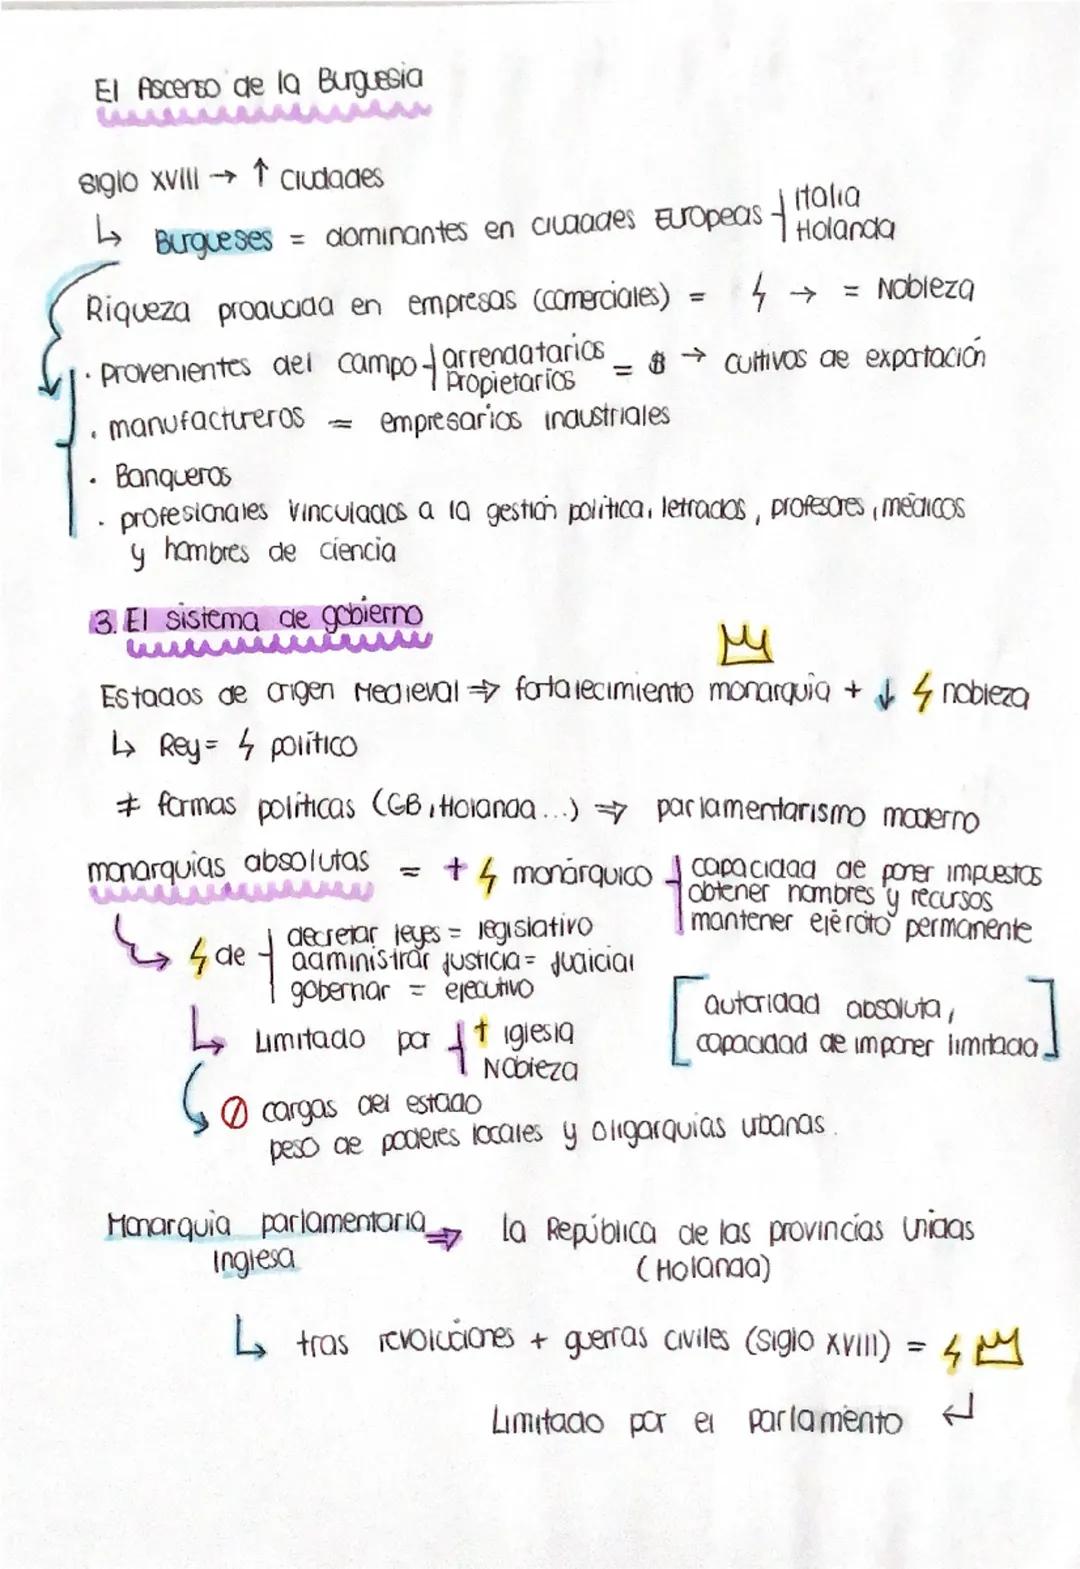 El Ascenso de la Burguesia
siglo XVIII → ↑ ciudades
↳ Burgueses = dominantes en ciudades Europeas { Italia
Holanda
Riqueza producida en empresas (comerciales) = ⚡ → = Nobleza
· provenientes del campo { arrendatarios = $ → cultivos de exportación
Propietarios
· manufactureros = empresarios industriales
· Banqueros
· profesionales vinculados a la gestión política, letrados, profesores, médicos
y hombres de ciencia
3. El sistema de gobierno
Estados de origen Medieval ⇒ fortalecimiento monarquia + ↓ ⚡ nobleza
↳ Rey = ⚡ político
≠ formas políticas (GB, Holanda...) ⇒ parlamentarismo moderno
monarquias absolutas = + ⚡ monárquico { capacidad de poner impuestos
obtener hombres y recursos
mantener ejército permanente
↳ ⚡ de { decretar leyes = legislativo
administrar justicia = Judicial
gobernar = ejecutivo
[autoridad absoluta,
capacidad de imponer limitada]
↳ Limitado por { † iglesia
Nobleza
∅ cargas del estado
peso de poderes locales y oligarquias urbanas.
Monarquia parlamentaria ⇒ la República de las provincias Unidas
Inglesa (Holanda)
↳ tras revoluciones + guerras civiles (siglo XVIII) = ⚡ 👑
Limitado por el parlamento ↵